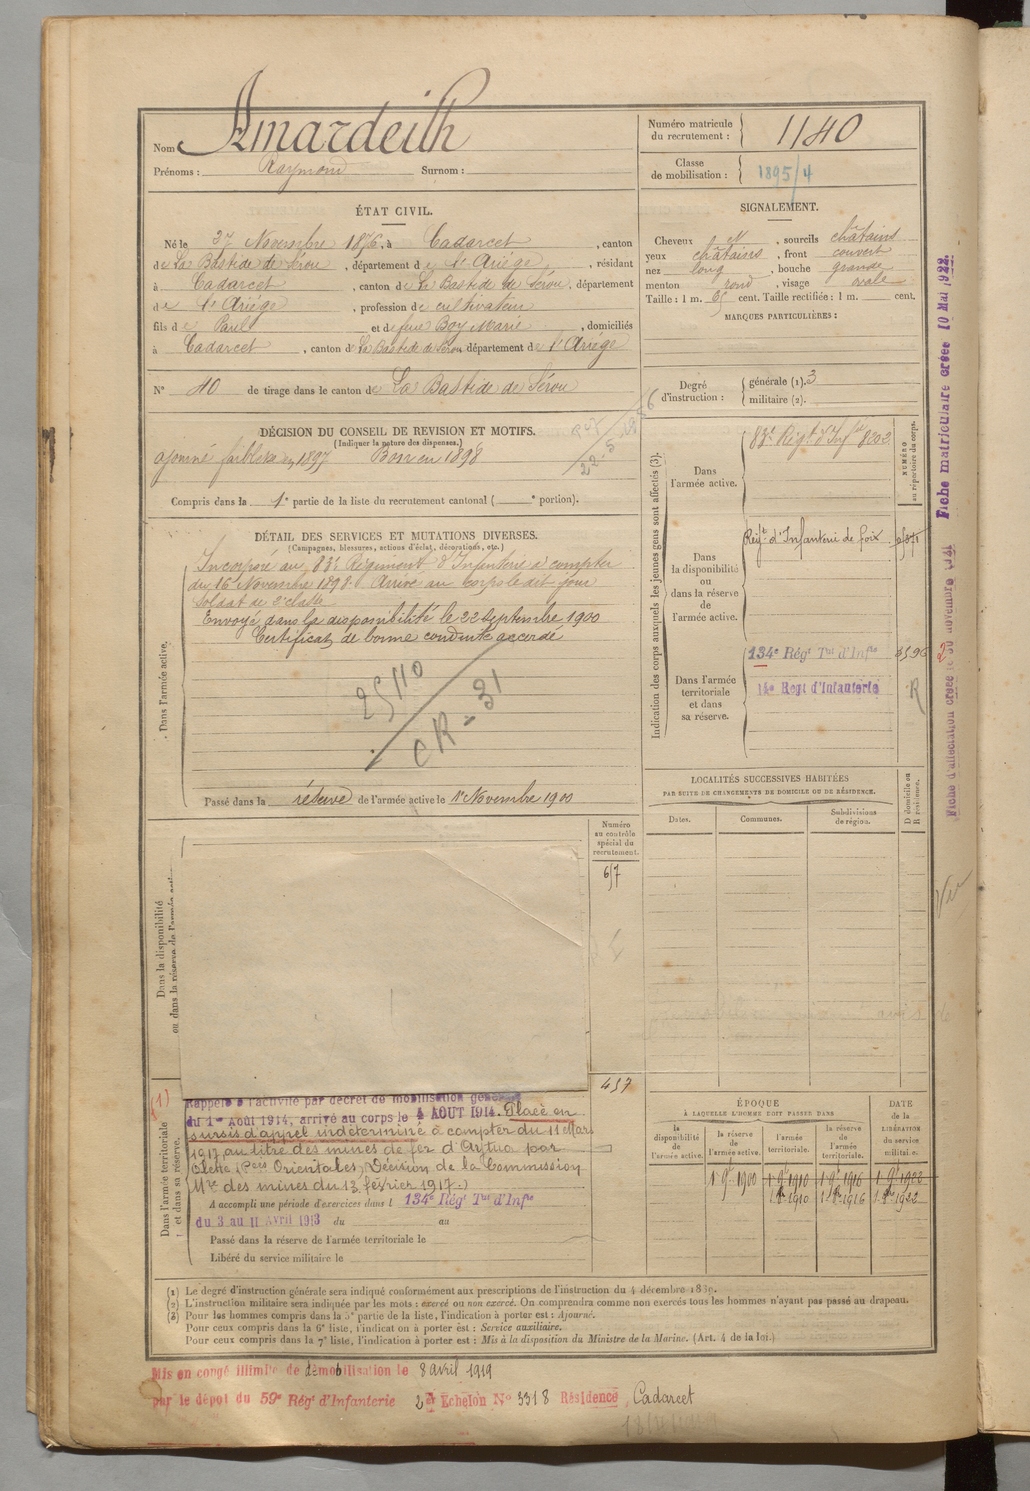 Nom Amardeilh
Prénoms : Raymond Surnom :
Numéro matricule du recrutement : 1140
Classe de mobilisation : 1895/4
ÉTAT CIVIL.
Né le 27 Novembre 1876, à Cadarcet, canton
de La Bastide de Sérou, département de l'Ariège, résidant
à Cadarcet, canton de La Bastide de Sérou, département
de l'Ariège, profession de cultivateur
fils de Paul et de feue Boy Marie, domiciliés
à Cadarcet, canton de La Bastide de Sérou, département de l'Ariège
N° 40 de tirage dans le canton de La Bastide de Sérou
SIGNALEMENT.
Cheveux N, sourcils châtains
yeux châtains, front couvert
nez long, bouche grande
menton rond, visage ovale
Taille : 1 m. 65 cent. Taille rectifiée : 1 m. cent.
MARQUES PARTICULIÈRES :
Degré d'instruction : générale (1). 3
militaire (2).
DÉCISION DU CONSEIL DE REVISION ET MOTIFS.
(Indiquer la nature des dispenses.)
ajourné faiblesse en 1897 Bon en 1898
Compris dans la 1e partie de la liste du recrutement cantonal ( e portion).
22-5
DÉTAIL DES SERVICES ET MUTATIONS DIVERSES.
(Campagnes, blessures, actions d'éclat, décorations, etc.)
Dans l'armée active.
Incorporé au 83e Régiment d'Infanterie à compter
du 16 Novembre 1898. Arrivé au corps le dit jour
soldat de 2e classe
Envoyé dans la disponibilité le 22 Septembre 1900
Certificat de bonne conduite accordé
25110
CR - 31
Passé dans la réserve de l'armée active le 1er Novembre 1900
Indication des corps auxquels les jeunes gens sont affectés (3).
NUMÉRO au répertoire du corps.
Dans l'armée active.
83e Régt d'Infie 8202
Dans la disponibilité ou dans la réserve de l'armée active.
Régt d'Infanterie de foix
Dans l'armée territoriale et dans sa réserve.
134e Régt Tal d'Infie
14e Regt d'Infanterie
R
LOCALITÉS SUCCESSIVES HABITÉES
PAR SUITE DE CHANGEMENTS DE DOMICILE OU DE RÉSIDENCE.
Dates. Communes. Subdivisions de région. D domicile ou R résidence.
Dans la disponibilité
ou dans la réserve de l'armée active.
Numéro au contrôle spécial du recrutement.
657
457
(1)
Dans l'armée territoriale et dans sa réserve.
Rappelé à l'activité par décret de mobilisation générale
du 1er Août 1914, arrivé au corps le 4 AOUT 1914. Placé en
sursis d'appel indéterminé à compter du 11 Mars
1917 au titre des mines de fer d'Aytua par
Olette (Pées Orientales, Décision de la Commission
Mre des mines du 13 février 1917.)
A accompli une période d'exercices dans l 134e Régt Tal d'Infie
du 3 au 11 Avril 1913 du au
Passé dans la réserve de l'armée territoriale le
Libéré du service militaire le
ÉPOQUE
À LAQUELLE L'HOMME DOIT PASSER DANS
la disponibilité de l'armée active. la réserve de l'armée active. l'armée territoriale. la réserve de l'armée territoriale. DATE de la LIBÉRATION du service militaire.
1 9bre 1900 1 9bre 1910 1 9bre 1916 1 9bre 1922
1910 1916 1922
(1) Le degré d'instruction générale sera indiqué conformément aux prescriptions de l'instruction du 4 décembre 1889.
(2) L'instruction militaire sera indiquée par les mots : exercé ou non exercé. On comprendra comme non exercés tous les hommes n'ayant pas passé au drapeau.
(3) Pour les hommes compris dans la 5e partie de la liste, l'indication à porter est : Ajourné.
Pour ceux compris dans la 6e liste, l'indication à porter est : Service auxiliaire.
Pour ceux compris dans la 7e liste, l'indication à porter est : Mis à la disposition du Ministre de la Marine. (Art. 4 de la loi.)
Mis en congé illimité de démobilisation le 8 avril 1919
par le dépôt du 59e Régt d'Infanterie 2e Echelon N° 3318 Résidence, Cadarcet
Fiche matriculaire créée 10 Mai 1922.
Fiche d'affectation créée le 30 novembre
Vu